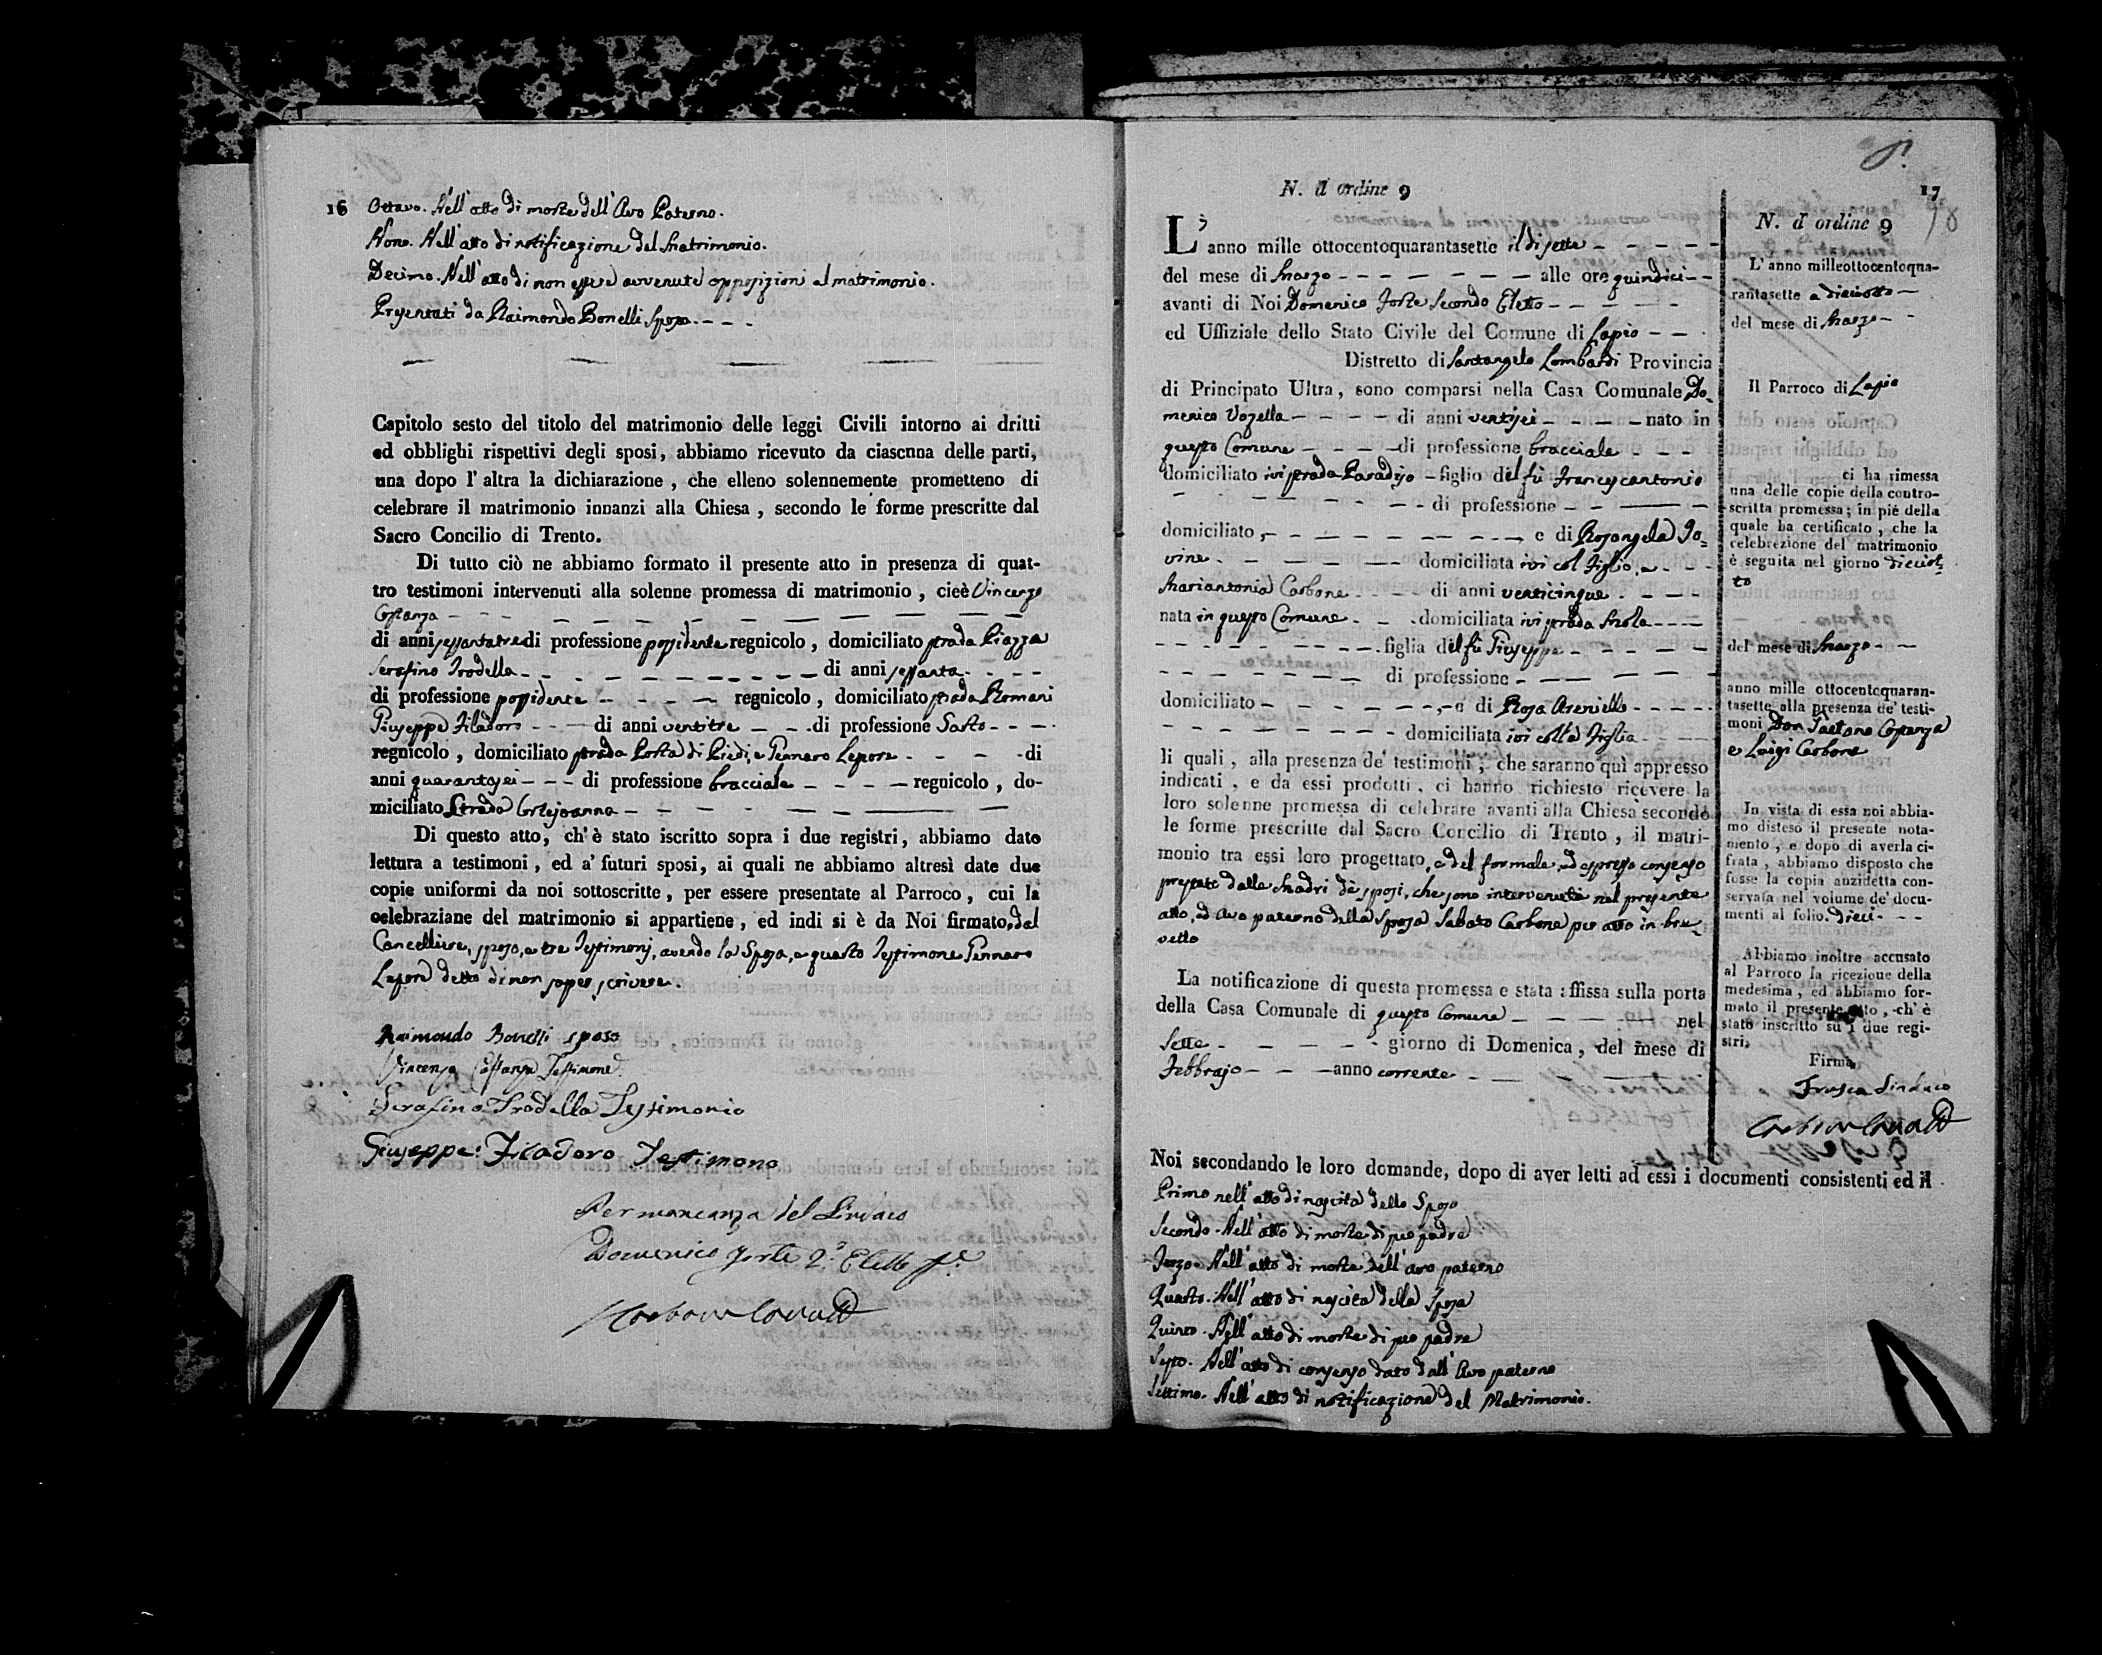 16
Ottavo. Nell'atto di morte dell'Avo Paterno.
Nono. Nell'atto di notificazione del Matrimonio.
Decimo. Nell'atto di non essere avvenute opposizioni al matrimonio.
Presentati da Raimondo Bonelli sposo.
Capitolo sesto del titolo del matrimonio delle leggi Civili intorno ai dritti
ed obblighi rispettivi degli sposi, abbiamo ricevuto da ciascnna delle parti,
una dopo l'altra la dichiarazione, che elleno solennemente prometteno di
celebrare il matrimonio innanzi alla Chiesa, secondo le forme prescritte dal
Sacro Concilio di Trento.
Di tutto ciò ne abbiamo formato il presente atto in presenza di quat-
tro testimoni intervenuti alla solenne promessa di matrimonio, cieè Vincenzo
Costanza
di anni sessantatre di professione possidente regnicolo, domiciliato strada Piazza
Serafino Trodella di anni sessanta
di professione possidente regnicolo, domiciliato strada Romani
Giuseppe Filadoro di anni ventitre di professione Sarto
regnicolo, domiciliato strada Porta di Piedi, e Gennaro Lepore di
anni quarantasei di professione bracciale regnicolo, do-
miciliato Strada Cortejoanna
Di questo atto, ch'è stato iscritto sopra i due registri, abbiamo dato
lettura a testimoni, ed a' futuri sposi, ai quali ne abbiamo altresì date due
copie uniformi da noi sottoscritte, per essere presentate al Parroco, cui la
celebraziane del matrimonio si appartiene, ed indi si è da Noi firmato, dal
Cancelliere, sposo, e tre Testimonj, avendo la Sposa, e quarto Testimone Gennaro
Lepore detto di non saper scrivere.
Raimondo Bonelli sposo
Vincenzo Costanza Testimone
Serafino Trodella Testimonio
Giuseppe Filadoro Testimone
Per mancanza del Sindaco
Domenico Forte 2.º Eletto
N. d'ordine 9
17
L'anno mille ottocentoquarantasette il dì sette
del mese di Marzo alle ore quindici
avanti di Noi Domenico Forte Secondo Eletto
ed Uffiziale dello Stato Civile del Comune di Lapio
Distretto di Santangelo Lombardi Provincia
di Principato Ultra, sono comparsi nella Casa Comunale Do-
menico Vozella di anni ventisei nato in
questo Comune di professione bracciale
domiciliato ivi strada Paradiso figlio del fù Francescantonio
di professione
domiciliato, e di Rosangela Jo-
vine domiciliata ivi col Figlio, e
Mariantonia Carbone di anni venticinque
nata in questo Comune domiciliata ivi strada Mola
figlia del fù Giuseppe
di professione
domiciliato e di Rosa Areniello
domiciliata ivi colla Figlia
li quali, alla presenza de' testimoni, che saranno quì appresso
indicati, e da essi prodotti, ci hanno richiesto ricevere la
loro solenne promessa di celebrare avanti alla Chiesa secondo
le forme prescritte dal Sacro Concilio di Trento, il matri-
monio tra essi loro progettato, e del formale, ed espresso consenso
prestato dalle Madri de' sposi, che sono intervenute nel presente
atto, ed Avo paterno della Sposa Sabato Carbone per atto in bre-
vetto
La notificazione di questa promessa e stata affissa sulla porta
della Casa Comunale di questo Comune nel
Sette giorno di Domenica, del mese di
Febbrajo anno corrente
Noi secondando le loro domande, dopo di aver letti ad essi i documenti consistenti ed il
Primo nell'atto di nascita dello Sposo
Secondo. Nell'atto di morte di suo padre
Terzo. Nell'atto di morte dell'avo paterno
Quarto. Nell'atto di nascita della Sposa
Quinto. Nell'atto di morte di suo padre
Sesto. Nell'atto di consenso dato dall'Avo paterno
Settimo. Nell'atto di notificazione del Matrimonio.
N. d'ordine 9
L'anno milleottocentoqua-
rantasette a dieciotto
del mese di Marzo
Il Parroco di Lapio
ci ha rimessa
una delle copie della contro-
scritta promessa; in piè della
quale ha certificato, che la
celebrezione del matrimonio
è seguita nel giorno dieciot-
to
del mese di Marzo
anno mille ottocentoquaran-
tasette alla presenza de' testi-
moni Don Gaetano Costanza
e Luigi Carbone
In vista di essa noi abbia-
mo disteso il presente nota-
mento, e dopo di averla ci-
frata, abbiamo disposto che
fosse la copia anzidetta con-
servata nel volume de' docu-
menti al folio dieci
Abbiamo inoltre accusato
al Parroco la ricezione della
medesima, ed abbiamo for-
mato il presente atto, ch'è
stato inscritto su i due regi-
stri,
Firma
Frusca Sindaco